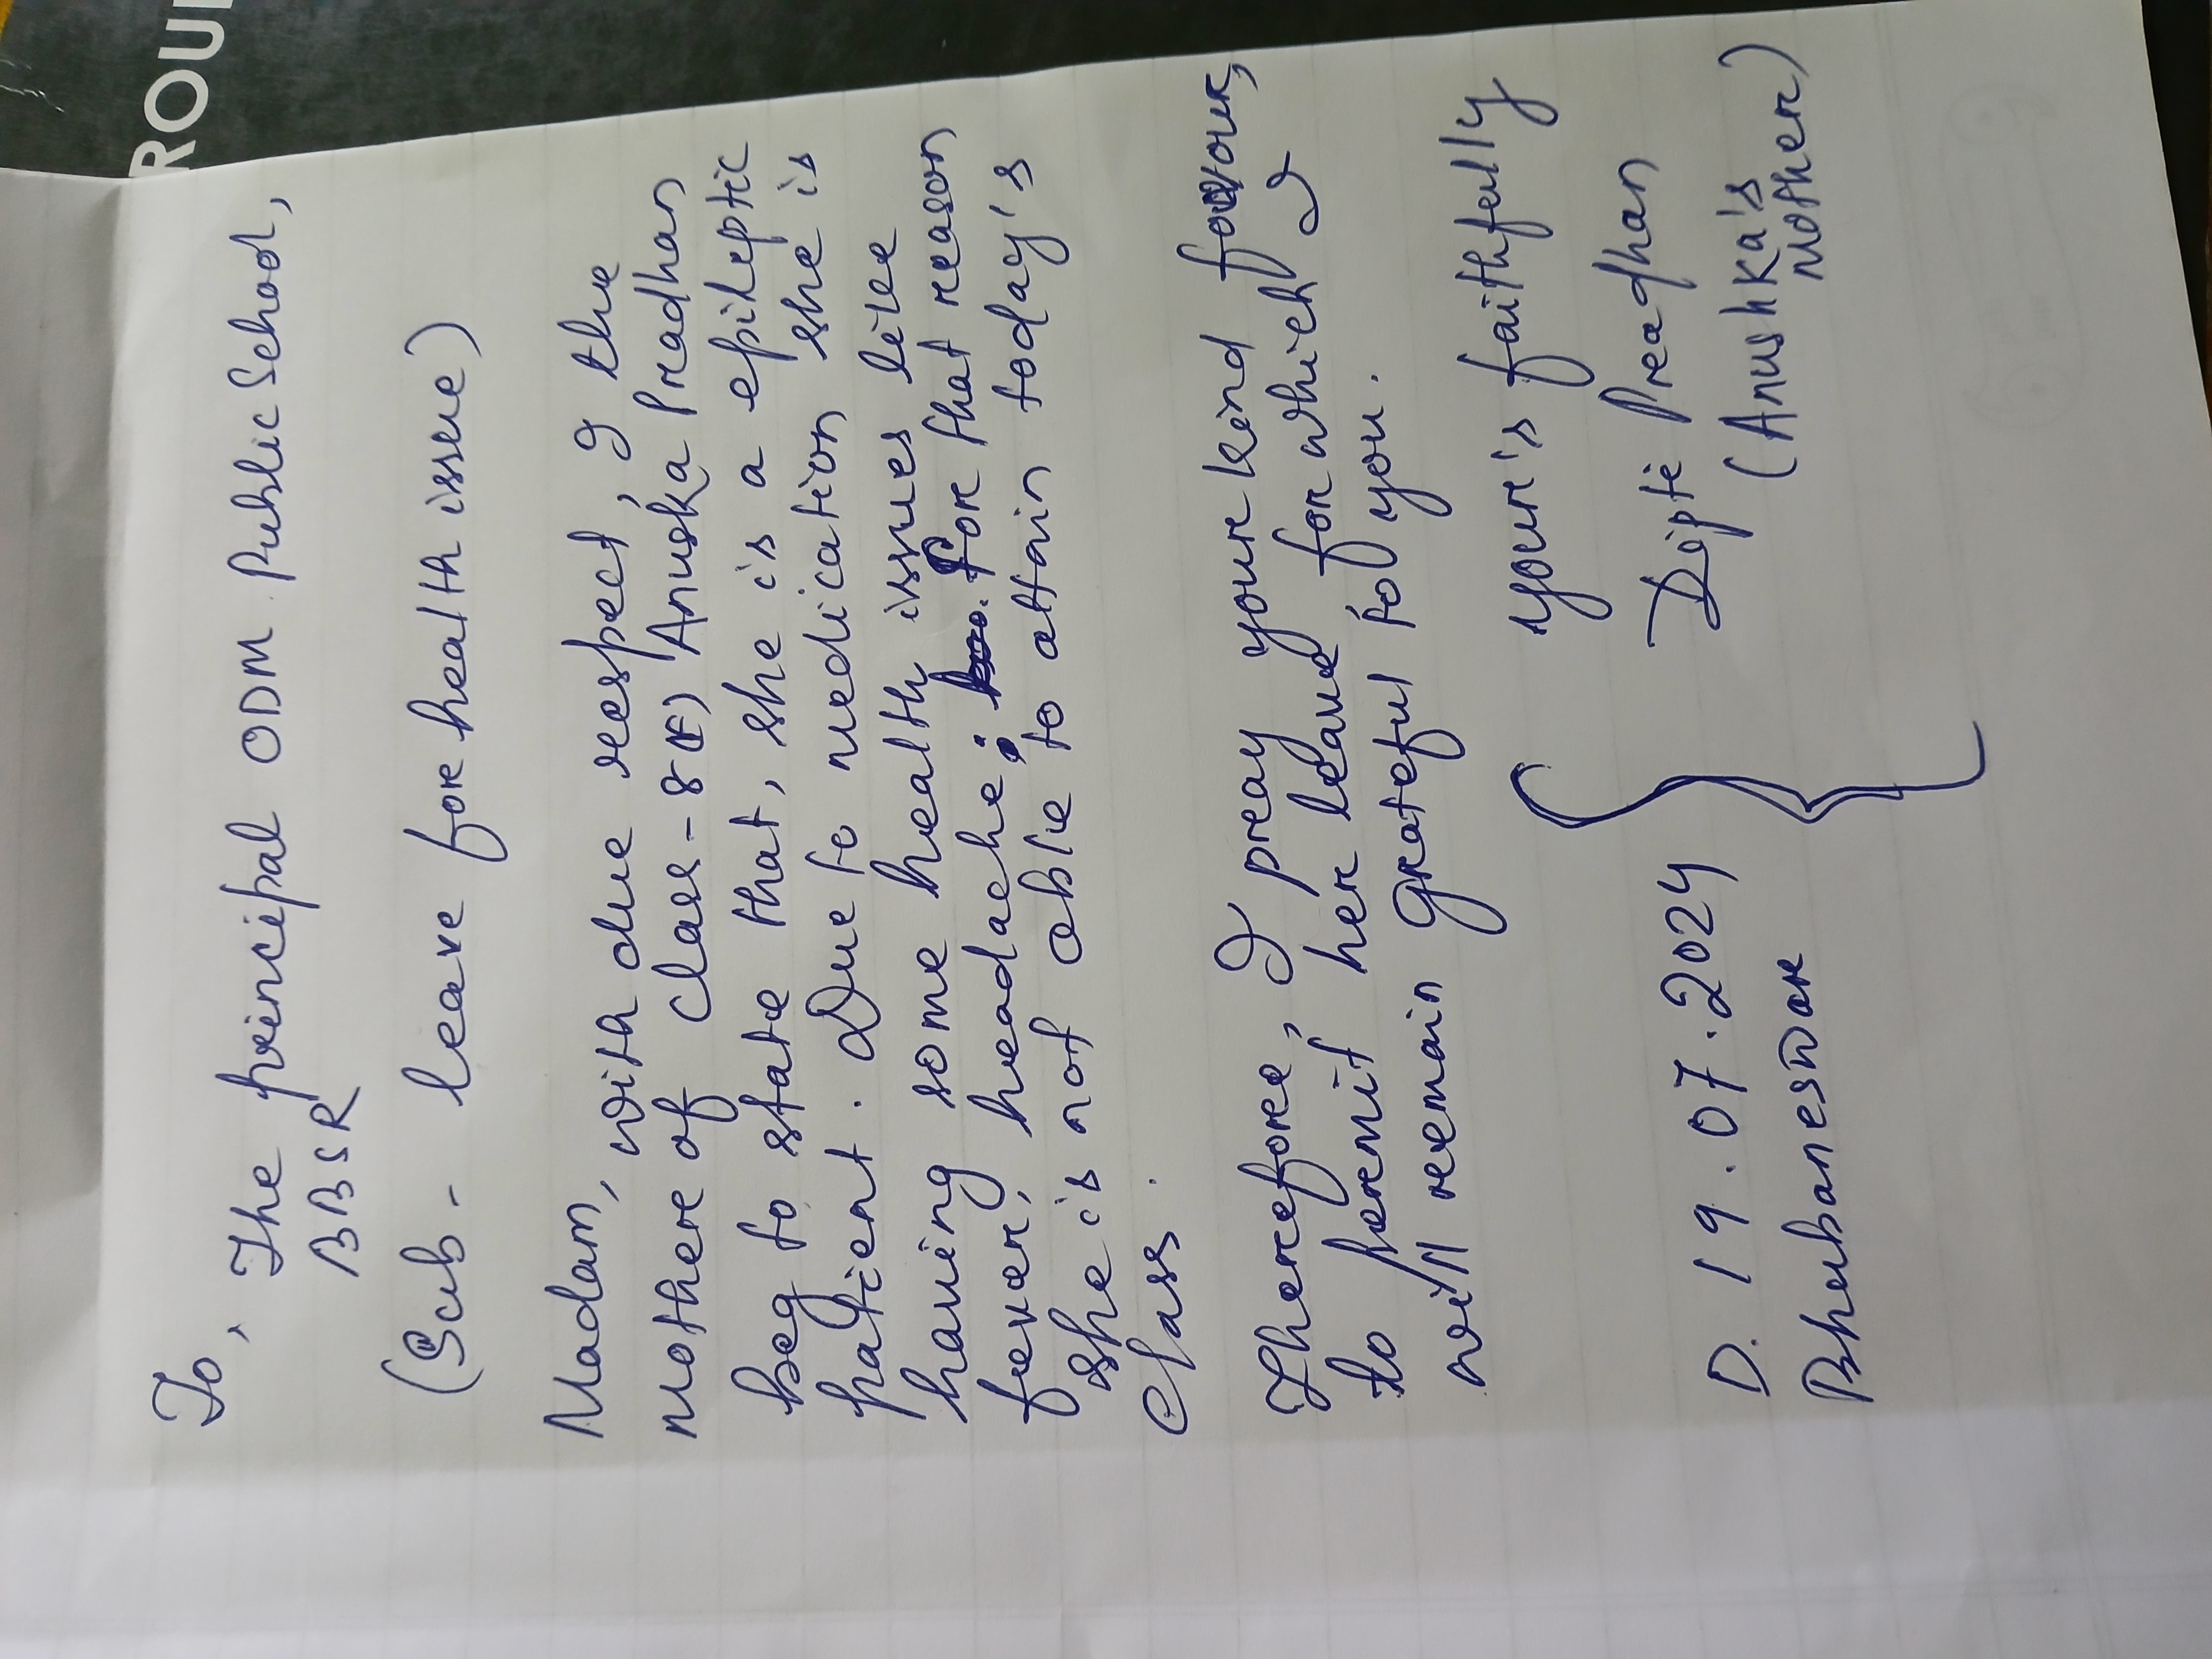 ROU
To,
The principal ODM Public School,
BBSR
(Sub - leave for health issue)
Madam, with due respect, I the
mother of class-8(F) Anuska Pradhan
beg to state that, she is a epileptic
patient. Due to medication she is
having some health issues like
fever, headache; for that reason
she is not able to attain today's
class.
Therefore, I pray your kind favour,
to permit her leave for which I
will remain grateful to you.
your's faithfully
Dipti Pradhan
(Anushka's
Mother)
D. 19.07.2024
Bhubaneswar